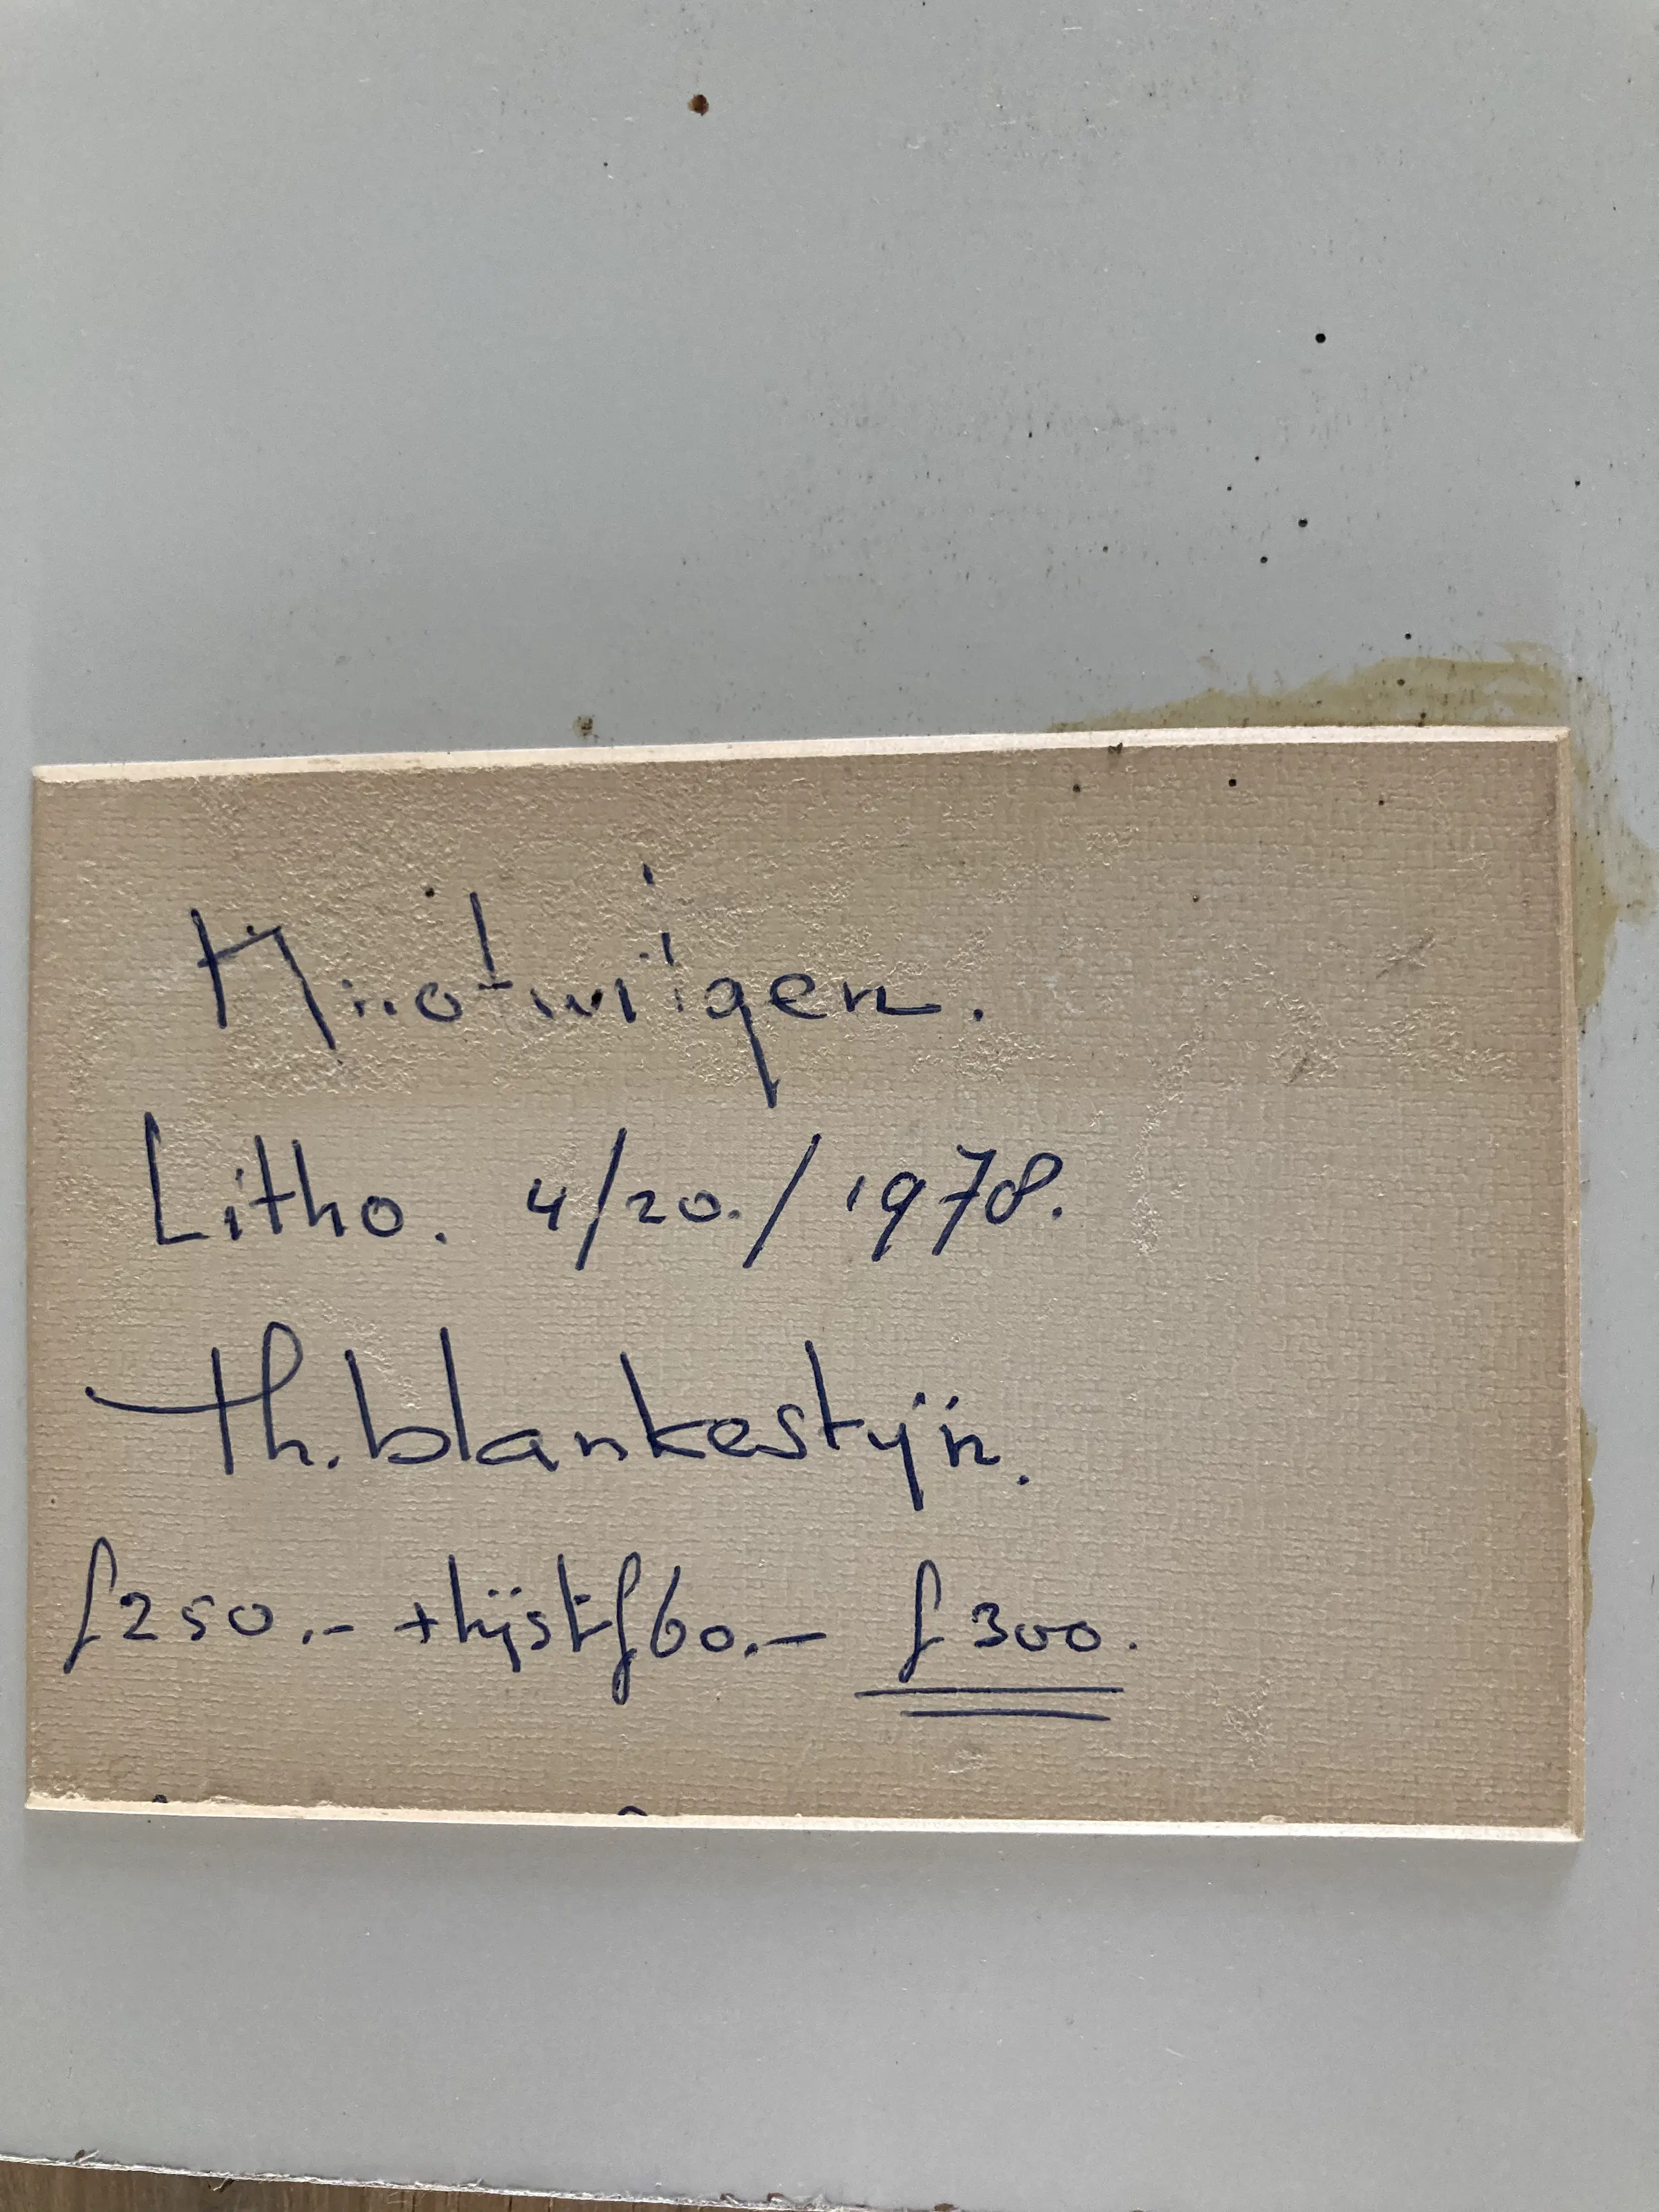 Litho. 4/20./1978.
th. blankestijn.
f250.- + lijst f60.- f300.